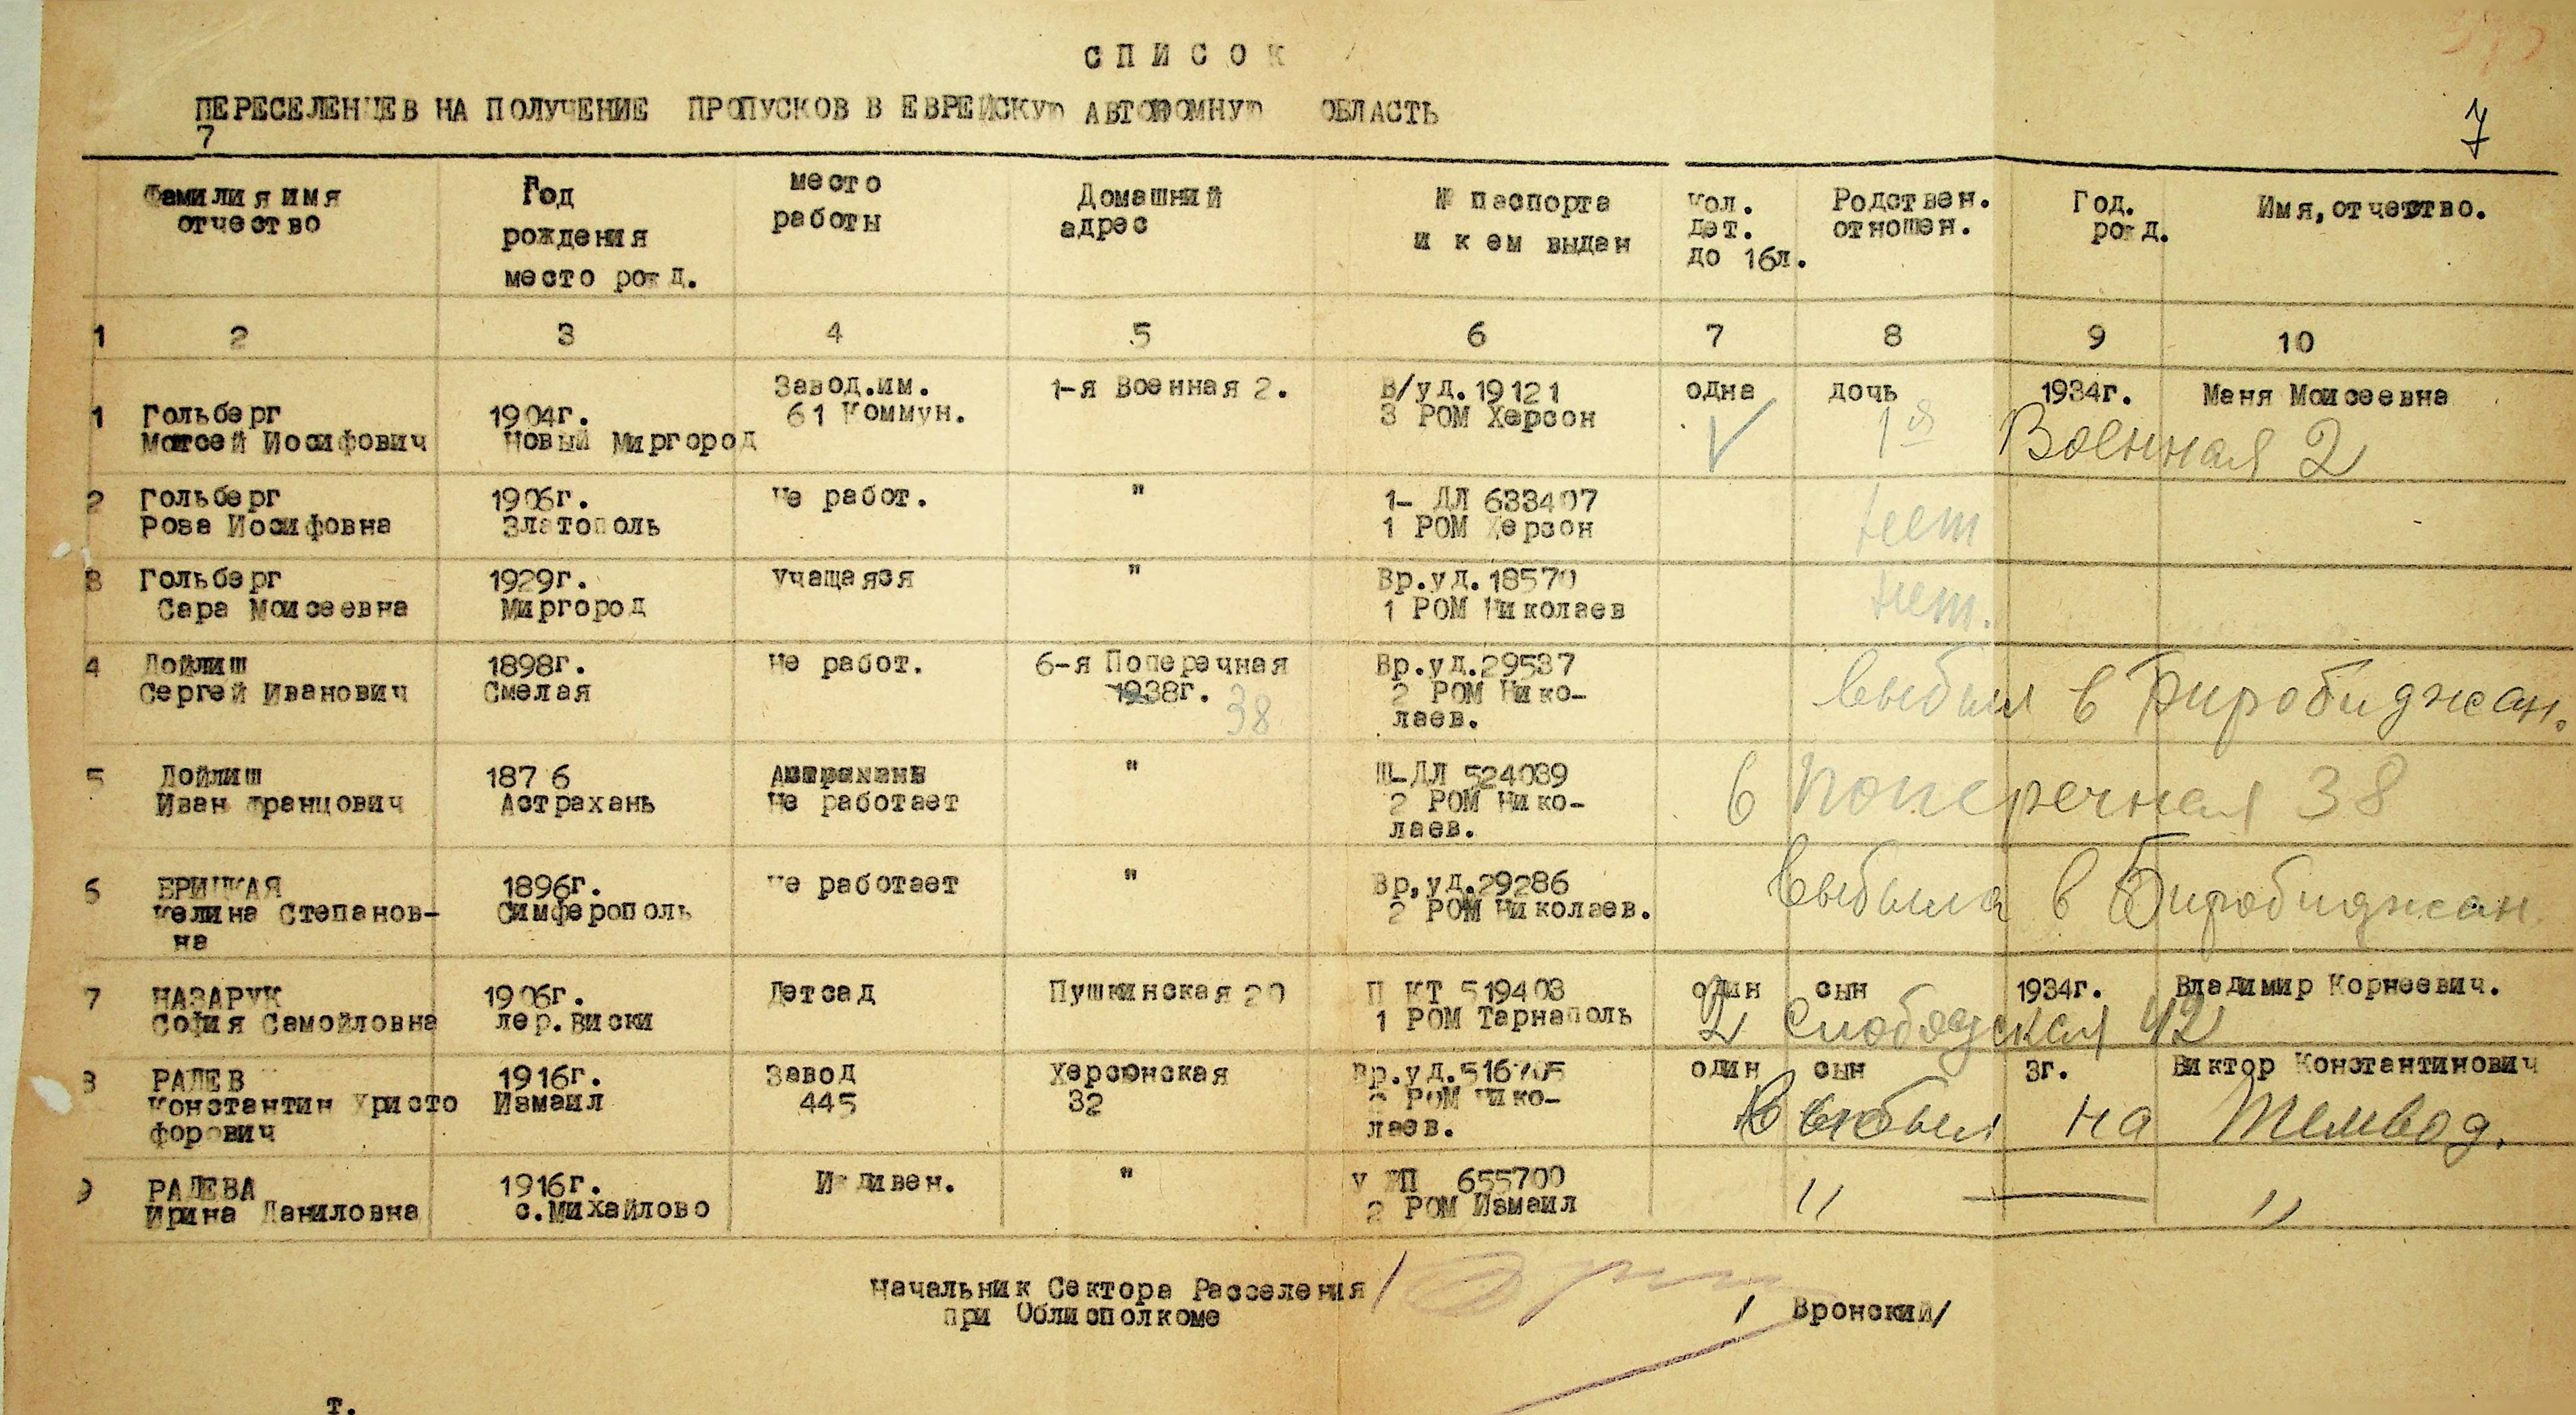 СПИСОК
ПЕРЕСЕЛЕНЦЕВ НА ПОЛУЧЕНИЕ ПРОПУСКОВ В ЕВРЕЙСКУЮ АВТОНОМНУЮ ОБЛАСТЬ
7
7
Фамилия имя отчество
Год рождения место рожд.
место работы
Домашний адрес
№ паспорта и кем выдан
кол. дет. до 16л.
Родствен. отношен.
Год. рожд.
Имя, отчество.
1 2 3 4 5 6 7 8 9 10
Завод.им. 1-я Военная 2. В/уд.19121 одна дочь 1934г. Маня Моисеевна
1 Гольберг 1904г. 61 Коммун. 3 РОМ Херсон
Моисей Иосифович Новый Миргород
V 1я Военная 2
2 Гольберг 1906г. не работ. " 1- ДЛ 633407
Роза Иосифовна Златополь 1 РОМ Херзон
нет
3 Гольберг 1929г. учащаяся " Вр.уд.18570
Сара Моисеевна Миргород 1 РОМ Николаев
нет.
4 Дойлиш 1898г. не работ. 6-я Поперечная Вр.уд.29537
Сергей Иванович Смелая 1938г. 38 2 РОМ Нико-
лаев.
выбыл в Биробиджан.
5 Дойлиш 1876 " Ш-ДЛ 524039
Иван Францович Астрахань Не работает 2 РОМ Нико-
лаев.
6 поперечная 38
6 БРИЦКАЯ 1896г. не работает " Вр,уд.29286
Келина Степанов- Симферополь 2 РОМ Николаев.
на
выбыла в Биробиджан
7 НАЗАРУК 1906г. Детсад Пушкинская 20 П КТ 519403 один сын 1934г. Владимир Корнеевич.
София Самойловна дер.Виски 1 РОМ Тарнаполь
2 Слободская 42
8 РАДЕВ 1916г. Завод Херсонская Вр.уд.516705 один сын 3г. Виктор Константинович
Константин Христо Измаил 445 32 2 РОМ Нико-
форович лаев.
Выбыл на Темвод.
9 РАДЕВА 1916г. Иждивен. " 655700
Ирина Даниловна с.Михайлово 2 РОМ Измаил
" — "
Начальник Сектора Расселения /
при Облисполкоме / Вронский/
т.